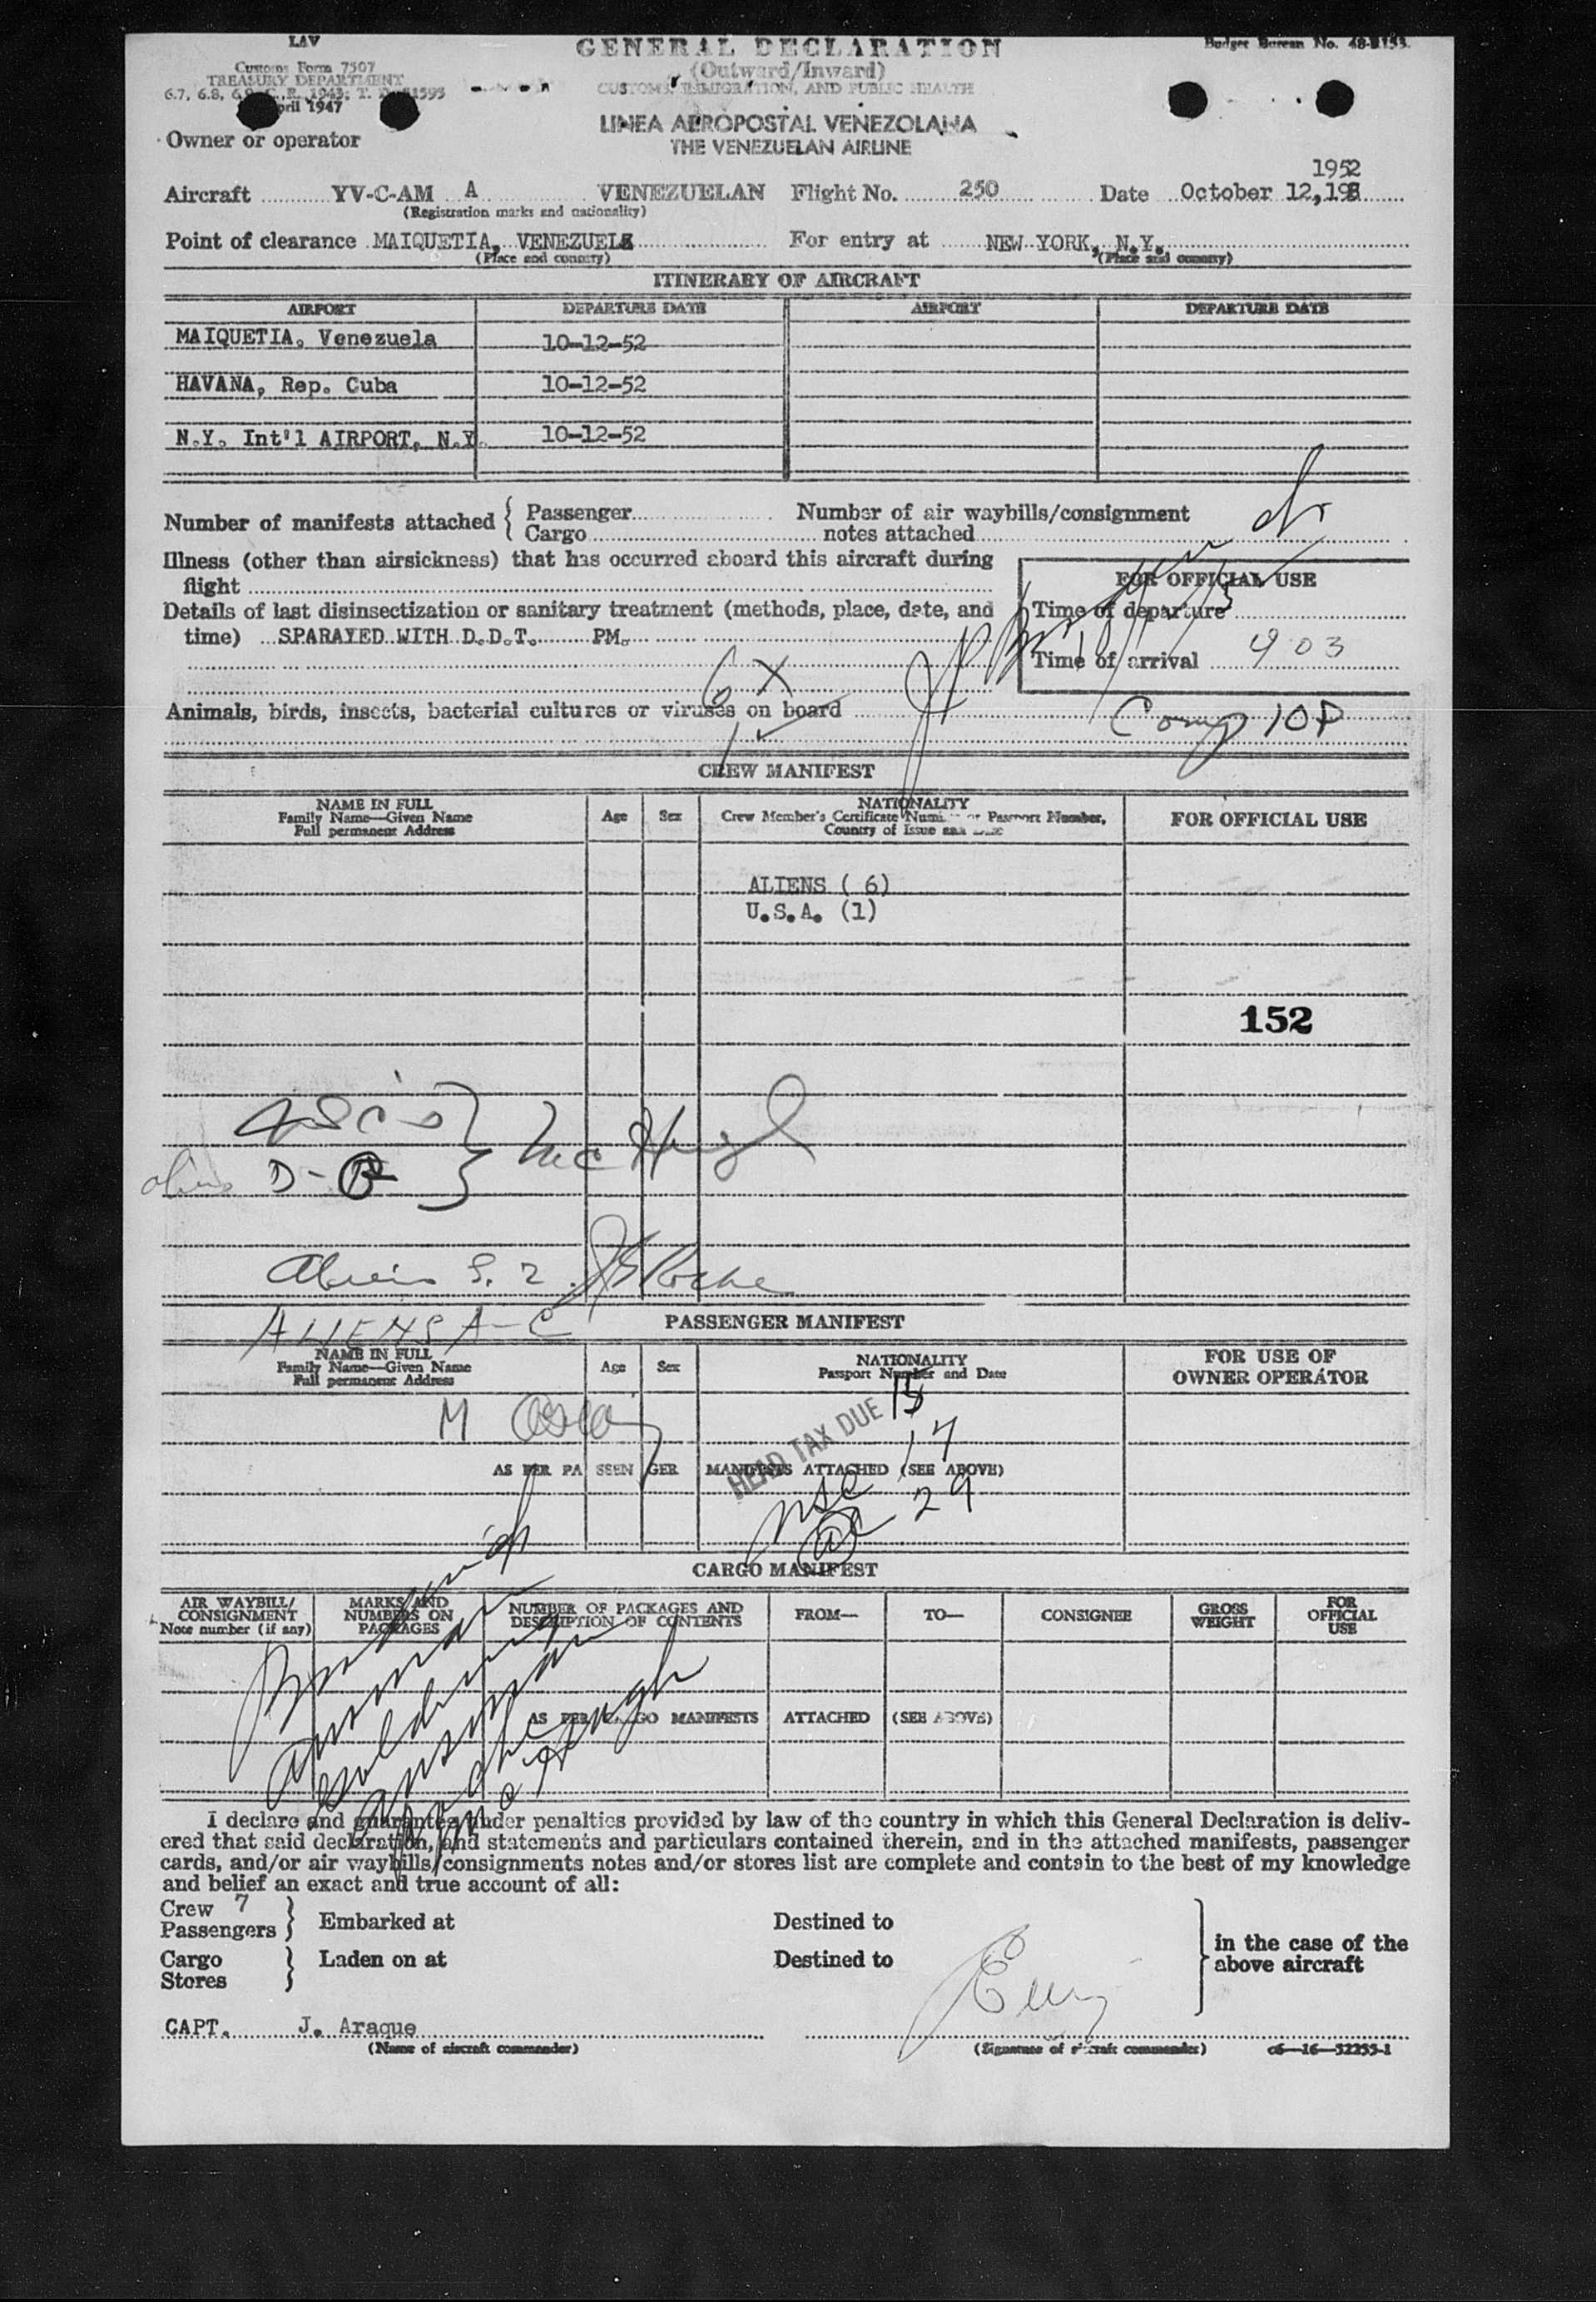 LAV
GENERAL DECLARATION
Budget Bureau No.
Customs Form 7507
(Outward/Inward)
TREASURY DEPARTMENT
CUSTOMS, IMMIGRATION, AND PUBLIC HEALTH
6.7, 6.8, C.R. 1943; T. D. 51595
April 1947
LINEA AEROPOSTAL VENEZOLANA
Owner or operator
THE VENEZUELAN AIRLINE
1952
Aircraft YV-C-AM A VENEZUELAN Flight No. 250 Date October 12,
(Registration marks and nationality)
Point of clearance MAIQUETIA, VENEZUELA For entry at NEW YORK, N.Y.
(Place and country) (Place and country)
ITINERARY OF AIRCRAFT
AIRPORT DEPARTURE DATE AIRPORT DEPARTURE DATE
MAIQUETIA. Venezuela 10-12-52
HAVANA, Rep. Cuba 10-12-52
N.Y. Int'l AIRPORT, N.Y. 10-12-52
Number of manifests attached { Passenger Number of air waybills/consignment
Cargo notes attached
Illness (other than airsickness) that has occurred aboard this aircraft during
flight
FOR OFFICIAL USE
Details of last disinsectization or sanitary treatment (methods, place, date, and
Time of departure
time) SPARAYED WITH D.D.T. PM.
Time of arrival 903
6 X
Animals, birds, insects, bacterial cultures or viruses on board
Comp 10P
1 ✓
CREW MANIFEST
NAME IN FULL
Family Name—Given Name
Full permanent Address
Age Sex
NATIONALITY
Crew Member's Certificate Number or Passport Number,
Country of Issue and Date
FOR OFFICIAL USE
ALIENS ( 6)
U.S.A. (1)
152
McHugh
D-R
Aliens S. Z. Roche
ALIENS A-C
PASSENGER MANIFEST
NAME IN FULL
Family Name—Given Name
Full permanent Address
Age Sex
NATIONALITY
Passport Number and Date
FOR USE OF
OWNER OPERATOR
M
HEAD TAX DUE
17
AS PER PASSENGER MANIFESTS ATTACHED (SEE ABOVE)
29
CARGO MANIFEST
AIR WAYBILL/
CONSIGNMENT
Note number (if any)
MARKS AND
NUMBERS ON
PACKAGES
NUMBER OF PACKAGES AND
DESCRIPTION OF CONTENTS
FROM— TO— CONSIGNEE
GROSS
WEIGHT
FOR
OFFICIAL
USE
Roche
McHugh
AS PER CARGO MANIFESTS ATTACHED (SEE ABOVE)
I declare and guarantee under penalties provided by law of the country in which this General Declaration is deliv-
ered that said declaration, and statements and particulars contained therein, and in the attached manifests, passenger
cards, and/or air waybills/consignments notes and/or stores list are complete and contain to the best of my knowledge
and belief an exact and true account of all:
Crew 7
Passengers } Embarked at Destined to
Cargo
Stores } Laden on at Destined to
in the case of the
above aircraft
CAPT. J. Araque
(Name of aircraft commander) (Signature of aircraft commander) c6—16—52255-1